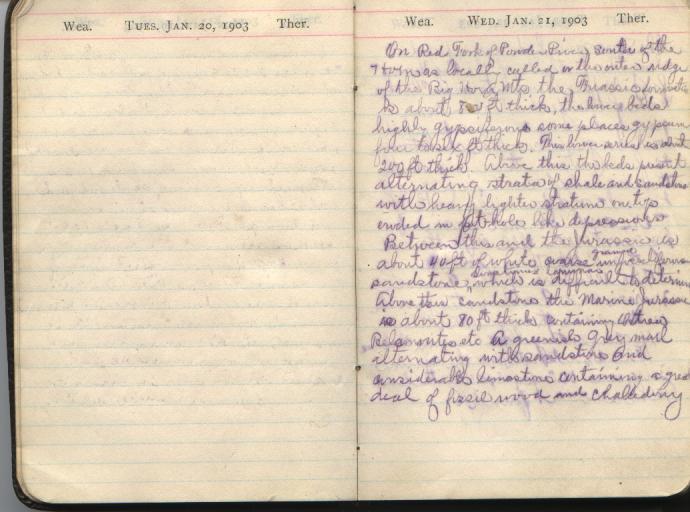 Wea. TUES. JAN. 20, 1903 Ther.
Wea. WED. JAN. 21, 1903 Ther.
On Red Fork of Powder River, South of the
Horn as locally called or the outer ridge
of the Big Horn Mts the Triassic formation
is about 800 ft thick, the lower beds
highly gypsiferous some places gypsum
four to six ft thick. This lower series is about
200 ft thick. Above this the beds present
alternating strata of shale and sandstone
with heavy lighter stratum on top
ended in pot hole like depressions
Between this and the Jurassic is
about 40 ft of white coarse grained
sandstone, sometimes which is difficult to determine
Above this sandstone the Marine Jurassic
is about 80 ft thick containing Ostrea
Belemnites etc A greenish Grey marl
alternating with sandstone and
considerable limestone containing a great
deal of fossil wood and Chalcedony